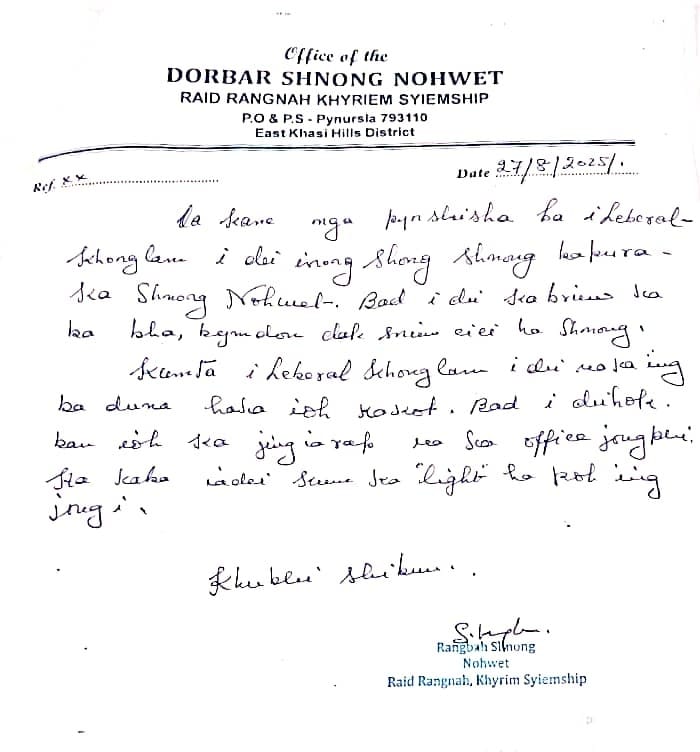 Office of the
DORBAR SHNONG NOHWET
RAID RANGNAH KHYRIEM SYIEMSHIP
P.O & P.S - Pynursla 793110
East Khasi Hills District
Ref. xx
Date 27/8/2025/.
Da kane nga pynshisha ba i Leberal
Khonglam i dei inong shong shnong kapura
ka Shnong Nohwet. Bad i dei ka briew ka
ba bha, kymdon dak sniew eiei ha Shnong.
Kumta i Leberal Khonglam i dei na ka ing
ba duna haka ioh kakot. Bad i dei hok
ban ioh ka jingiarap na ka office jong phi.
Ha kaba iadei ka "light" ha ing
jong i.
Khublei shibun..
Rangbah Shnong
Nohwet
Raid Rangnah, Khyrim Syiemship